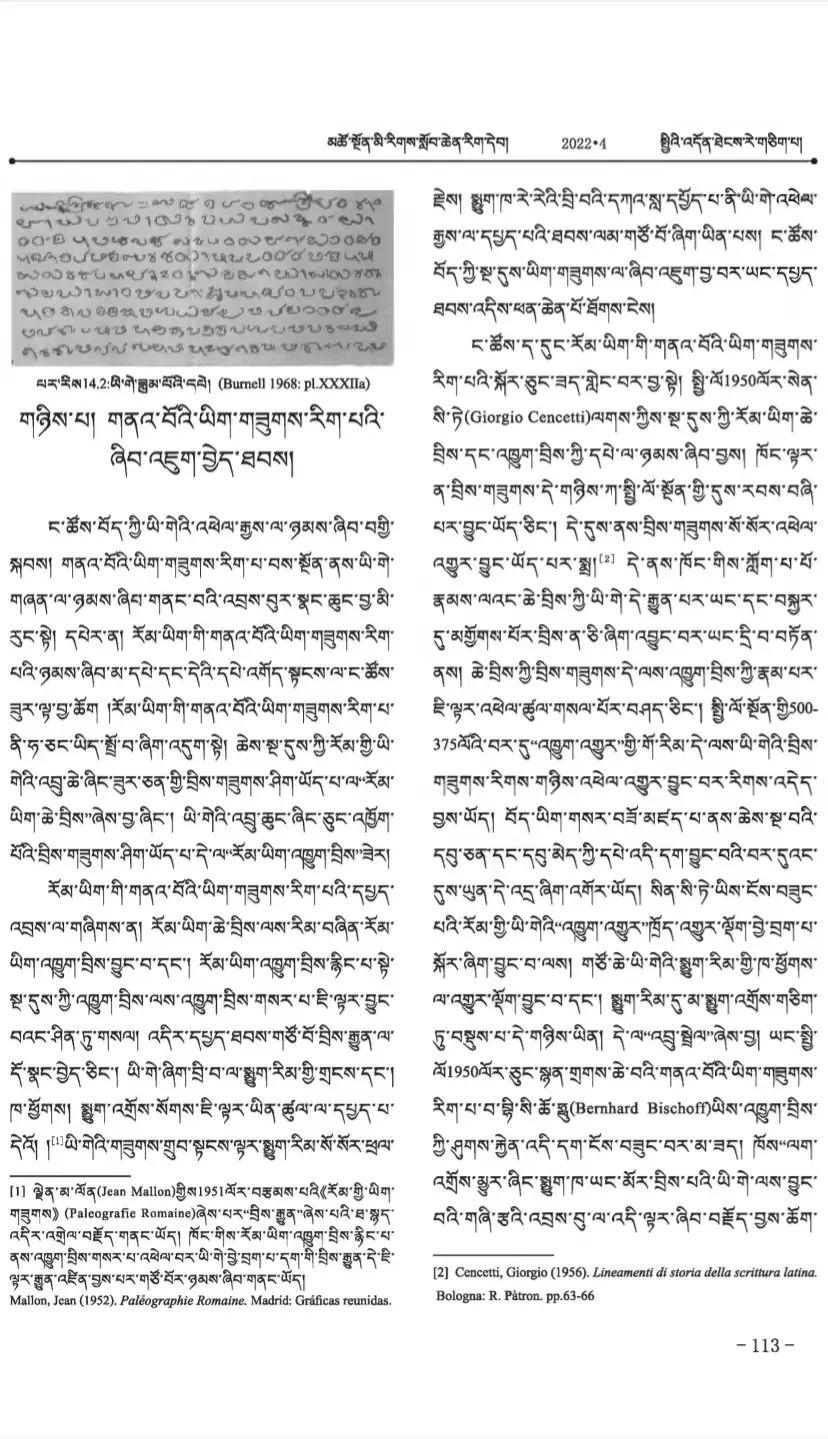 མཚོ་སྔོན་མི་རིགས་སློབ་ཆེན་རིག་དེབ། 2022•4 སྤྱིའི་འདོན་ཐེངས་རེ་གཅིག་པ།
པར་རིས14.2:ཡི་གེ་ཟླུམ་པོའི་དཔེ། (Burnell 1968: pl.XXXIIa)
གཉིས་པ། གནའ་བོའི་ཡིག་གཟུགས་རིག་པའི་
ཞིབ་འཇུག་བྱེད་ཐབས།
ང་ཚོས་བོད་ཀྱི་ཡི་གེའི་འཕེལ་རྒྱས་ལ་ཉམས་ཞིབ་བགྱི་
སྐབས། གནའ་བོའི་ཡིག་གཟུགས་རིག་པ་བས་སྔོན་ནས་ཡི་གེ་
གཞན་ལ་ཉམས་ཞིབ་གནང་བའི་འབྲས་བུར་སྣང་ཆུང་བྱ་མི་
རུང་སྟེ། དཔེར་ན། རོམ་ཡིག་གི་གནའ་བོའི་ཡིག་གཟུགས་རིག་
པའི་ཉམས་ཞིབ་མ་དཔེ་དང་དེའི་དཔེ་འགོད་སྟངས་ལ་ང་ཚོས་
ཟུར་ལྟ་བྱ་ཆོག །རོམ་ཡིག་གི་གནའ་བོའི་ཡིག་གཟུགས་རིག་པ་
ནི་ཧ་ཅང་ཡིད་སྤྲོ་བ་ཞིག་འདུག་སྟེ། ཆེས་སྔ་དུས་ཀྱི་རོམ་གྱི་ཡི་
གེའི་འབྲུ་ཆེ་ཞིང་ཟུར་ཅན་གྱི་བྲིས་གཟུགས་ཤིག་ཡོད་པ་ལ“རོམ་
ཡིག་ཆེ་བྲིས”ཞེས་བྱ་ཞིང་། ཡི་གེའི་འབྲུ་ཆུང་ཞིང་ཅུང་འཁྱོག་
པོའི་བྲིས་གཟུགས་ཤིག་ཡོད་པ་དེ་ལ“རོམ་ཡིག་འཁྱུག་བྲིས”ཟེར།
རོམ་ཡིག་གི་གནའ་བོའི་ཡིག་གཟུགས་རིག་པའི་དཔྱད་
འབྲས་ལ་གཞིགས་ན། རོམ་ཡིག་ཆེ་བྲིས་ལས་རིམ་བཞིན་རོམ་
ཡིག་འཁྱུག་བྲིས་བྱུང་བ་དང་། རོམ་ཡིག་འཁྱུག་བྲིས་རྙིང་པ་སྟེ་
སྔ་དུས་ཀྱི་འཁྱུག་བྲིས་ལས་འཁྱུག་བྲིས་གསར་པ་ཇི་ལྟར་བྱུང་
བའང་ཤིན་ཏུ་གསལ། འདིར་དཔྱད་ཐབས་གཙོ་བོ་བྲིས་རྒྱུན་ལ་
དོ་སྣང་བྱེད་ཅིང་། ཡི་གེ་ཞིག་བྲི་བ་ལ་སྨྱུག་རིམ་གྱི་གྲངས་དང་།
ཁ་ཕྱོགས། སྨྱུག་འགྲོས་སོགས་ཇི་ལྟར་ཡིན་ཚུལ་ལ་དཔྱད་པ་
དེའོ། །[1]ཡི་གེའི་གཟུགས་གྲུབ་སྟངས་ལྟར་སྨྱུག་རིམ་སོ་སོར་ཕྲལ་
[1] ལྗེན་མ་ལོན(Jean Mallon)གྱིས1951ལོར་བརྩམས་པའི《རོམ་གྱི་ཡིག་
གཟུགས》(Paleografie Romaine)ཞེས་པར“བྲིས་རྒྱུན”ཞེས་པའི་ཐ་སྙད་
འདིར་འགྲེལ་བརྗོད་གནང་ཡོད། ཁོང་གིས་རོམ་ཡིག་འཁྱུག་བྲིས་རྙིང་པ་
ནས་འཁྱུག་བྲིས་གསར་པ་འཕེལ་བར་ཡི་གེ་བྱེ་བྲག་པ་དག་གི་བྲིས་རྒྱུན་དེ་ཇི་
ལྟར་རྒྱུན་འཛིན་བྱས་པར་གཙོ་བོར་ཉམས་ཞིབ་གནང་ཡོད།
Mallon, Jean (1952). Paléographie Romaine. Madrid: Gráficas reunidas.
རྗེས། སྨྱུག་ཁ་རེ་རེའི་བྲི་བའི་དཀའ་སླ་དཔྱོད་པ་ནི་ཡི་གེ་འཕེལ་
རྒྱས་ལ་དཔྱད་པའི་ཐབས་ལམ་གཙོ་བོ་ཞིག་ཡིན་པས། ང་ཚོས་
བོད་ཀྱི་སྔ་དུས་ཡིག་གཟུགས་ལ་ཞིབ་འཇུག་བྱ་བར་ཡང་དཔྱད་
ཐབས་འདིས་ཕན་ཆེན་པོ་ཐོགས་ངེས།
ང་ཚོས་ད་དུང་རོམ་ཡིག་གི་གནའ་བོའི་ཡིག་གཟུགས་
རིག་པའི་སྐོར་ཅུང་ཟད་གླེང་བར་བྱ་སྟེ། སྤྱི་ལོ1950ལོར་སེན་
སི་ཏེ(Giorgio Cencetti)ལགས་ཀྱིས་སྔ་དུས་ཀྱི་རོམ་ཡིག་ཆེ་
བྲིས་དང་འཁྱུག་བྲིས་ཀྱི་དཔེ་ལ་ཉམས་ཞིབ་བྱས། ཁོང་ལྟར་
ན་བྲིས་གཟུགས་དེ་གཉིས་ཀ་སྤྱི་ལོ་སྔོན་གྱི་དུས་རབས་བཞི་
པར་བྱུང་ཡོད་ཅིང་། དེ་དུས་ནས་བྲིས་གཟུགས་སོ་སོར་འཕེལ་
འགྱུར་བྱུང་ཡོད་པར་སྨྲ།[2] དེ་ནས་ཁོང་གིས་ཀློག་པ་པོ་
རྣམས་ལའང་ཆེ་བྲིས་ཀྱི་ཡི་གེ་དེ་རྒྱུན་པར་ཡང་དང་བསྐྱར་
དུ་མགྱོགས་པོར་བྲིས་ན་ཅི་ཞིག་འབྱུང་བར་ཡང་དྲི་བ་བཏོན་
ནས། ཆེ་བྲིས་ཀྱི་བྲིས་གཟུགས་དེ་ལས་འཁྱུག་བྲིས་ཀྱི་རྣམ་པར་
ཇི་ལྟར་འཕེལ་ཚུལ་གསལ་པོར་བཤད་ཅིང་། སྤྱི་ལོ་སྔོན་གྱི500-
375ལོའི་བར་དུ“འཁྱུག་འགྱུར”གྱི་གོ་རིམ་དེ་ལས་ཡི་གེའི་བྲིས་
གཟུགས་རིགས་གཉིས་འཕེལ་འགྱུར་བྱུང་བར་རིགས་འདེད་
བྱས་ཡོད། བོད་ཡིག་གསར་བཟོ་མཛད་པ་ནས་ཆེས་སྔ་བའི་
དབུ་ཅན་དང་དབུ་མེད་ཀྱི་དཔེ་འདི་དག་བྱུང་བའི་བར་དུའང་
དུས་ཡུན་དེ་འདྲ་ཞིག་འགོར་ཡོད། སེན་སི་ཏེ་ཡིས་ངོས་བཟུང་
པའི་རོམ་གྱི་ཡི་གེའི“འཁྱུག་འགྱུར”ཁྲོད་འགྱུར་ལྡོག་བྱེ་བྲག་པ་
སྐོར་ཞིག་བྱུང་བ་ལས། གཙོ་ཆེ་ཡི་གེའི་སྨྱུག་རིམ་གྱི་ཁ་ཕྱོགས་
ལ་འགྱུར་ལྡོག་བྱུང་བ་དང་། སྨྱུག་རིམ་དུ་མ་སྨྱུག་འགྲོས་གཅིག་
ཏུ་བསྡུས་པ་དེ་གཉིས་ཡིན། དེ་ལ“འབྲུ་སྦྲེལ”ཞེས་བྱ། ཡང་སྤྱི་
ལོ1950ལོར་ཅུང་སྙན་གྲགས་ཆེ་བའི་གནའ་བོའི་ཡིག་གཟུགས་
རིག་པ་བ་བྷི་སི་ཆོ་ཧྥུ(Bernhard Bischoff)ཡིས་འཁྱུག་བྲིས་
ཀྱི་ཤུགས་རྐྱེན་འདི་དག་ངོས་བཟུང་བར་མ་ཟད། ཁོས“ལག་
འགྲོས་མྱུར་ཞིང་སྨྱུག་ཁ་ཡང་མོར་བྲིས་པའི་ཡི་གེ་ལས་བྱུང་
བའི་གཞི་རྩའི་འབྲས་བུ་ལ་འདི་ལྟར་ཞིབ་བརྗོད་བྱས་ཆོག་
[2] Cencetti, Giorgio (1956). Lineamenti di storia della scrittura latina.
Bologna: R. Pàtron. pp.63-66
– 113 –